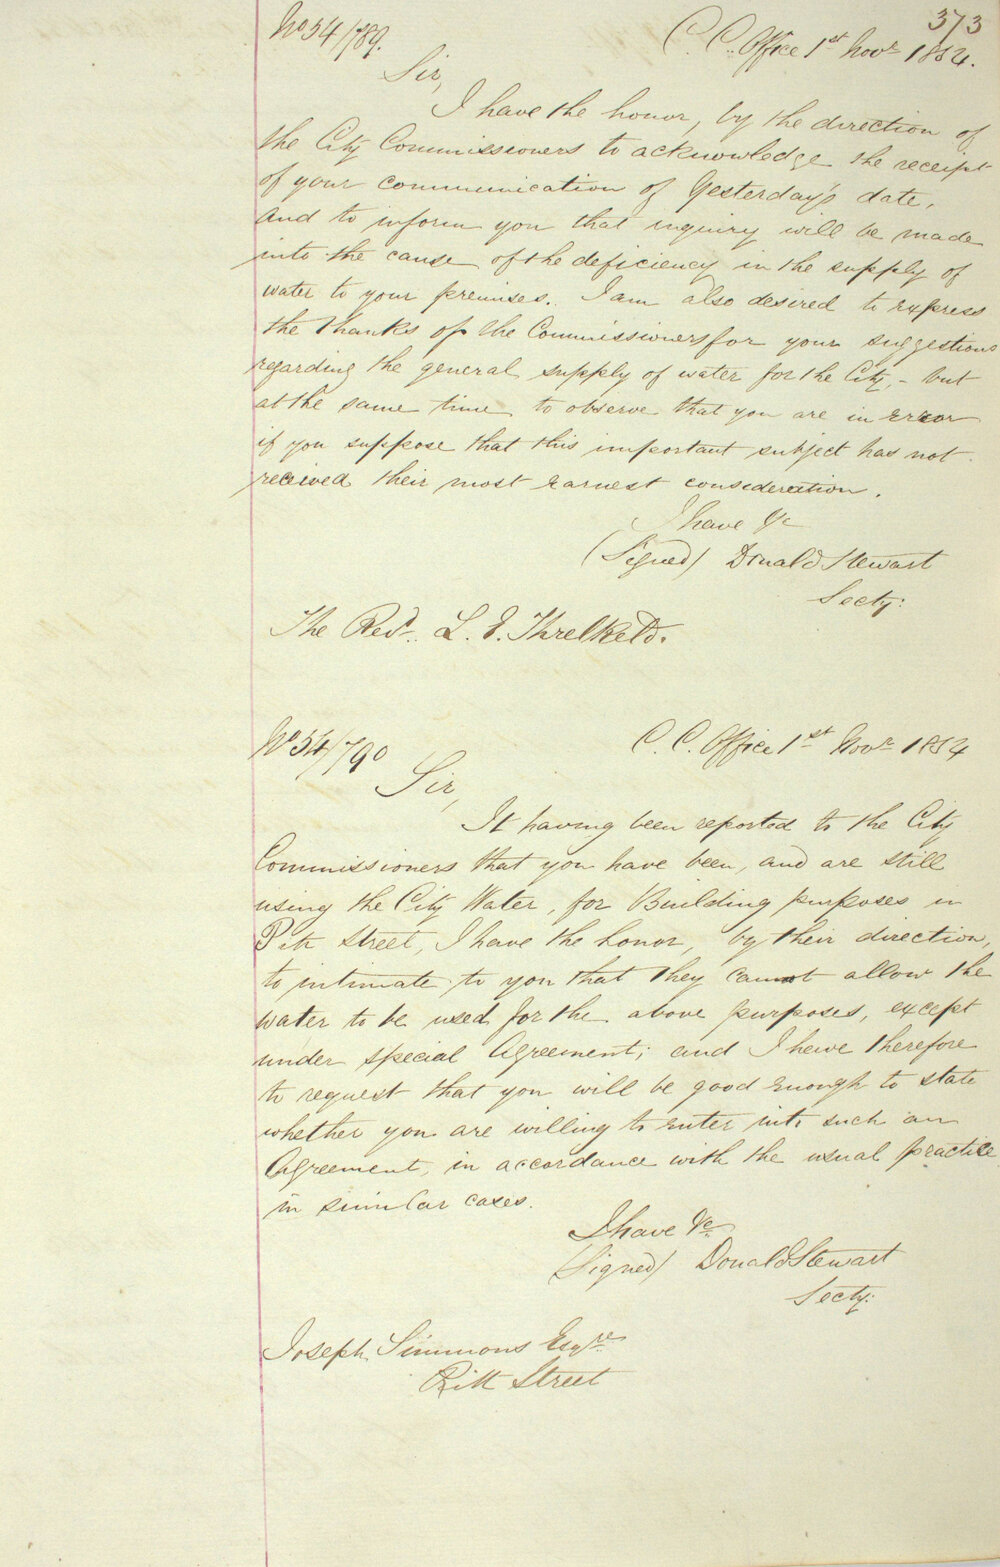 373
No 54/789. C. C. Office 1st Novr 1854.
Sir,
I have the honor, by the direction of
the City Commissioners to acknowledge the receipt
of your communication of Yesterday's date,
and to inform you that inquiry will be made
into the cause of the deficiency in the supply of
water to your premises. I am also desired to express
the thanks of the Commissioners for your suggestions
regarding the general supply of water for the City, - but
at the same time to observe that you are in error
if you suppose that this important subject has not
received their most earnest consideration.
I have &c
(Signed) Donald Stewart
Secty:
The Revd. L. E. Threlkeld.
No 54/790 C. C. Office 1st Novr 1854
Sir,
It having been reported to the City
Commissioners that you have been, and are still
using the City Water, for Building purposes in
Pitt Street, I have the honor, by their direction,
to intimate to you that they cannot allow the
water to be used for the above purposes, except
under special Agreement; and I have therefore
to request that you will be good enough to state
whether you are willing to enter into such an
Agreement, in accordance with the usual practice
in similar cases.
I have &c
(Signed) Donald Stewart
Secty:
Joseph Simmons Esqre
Pitt Street